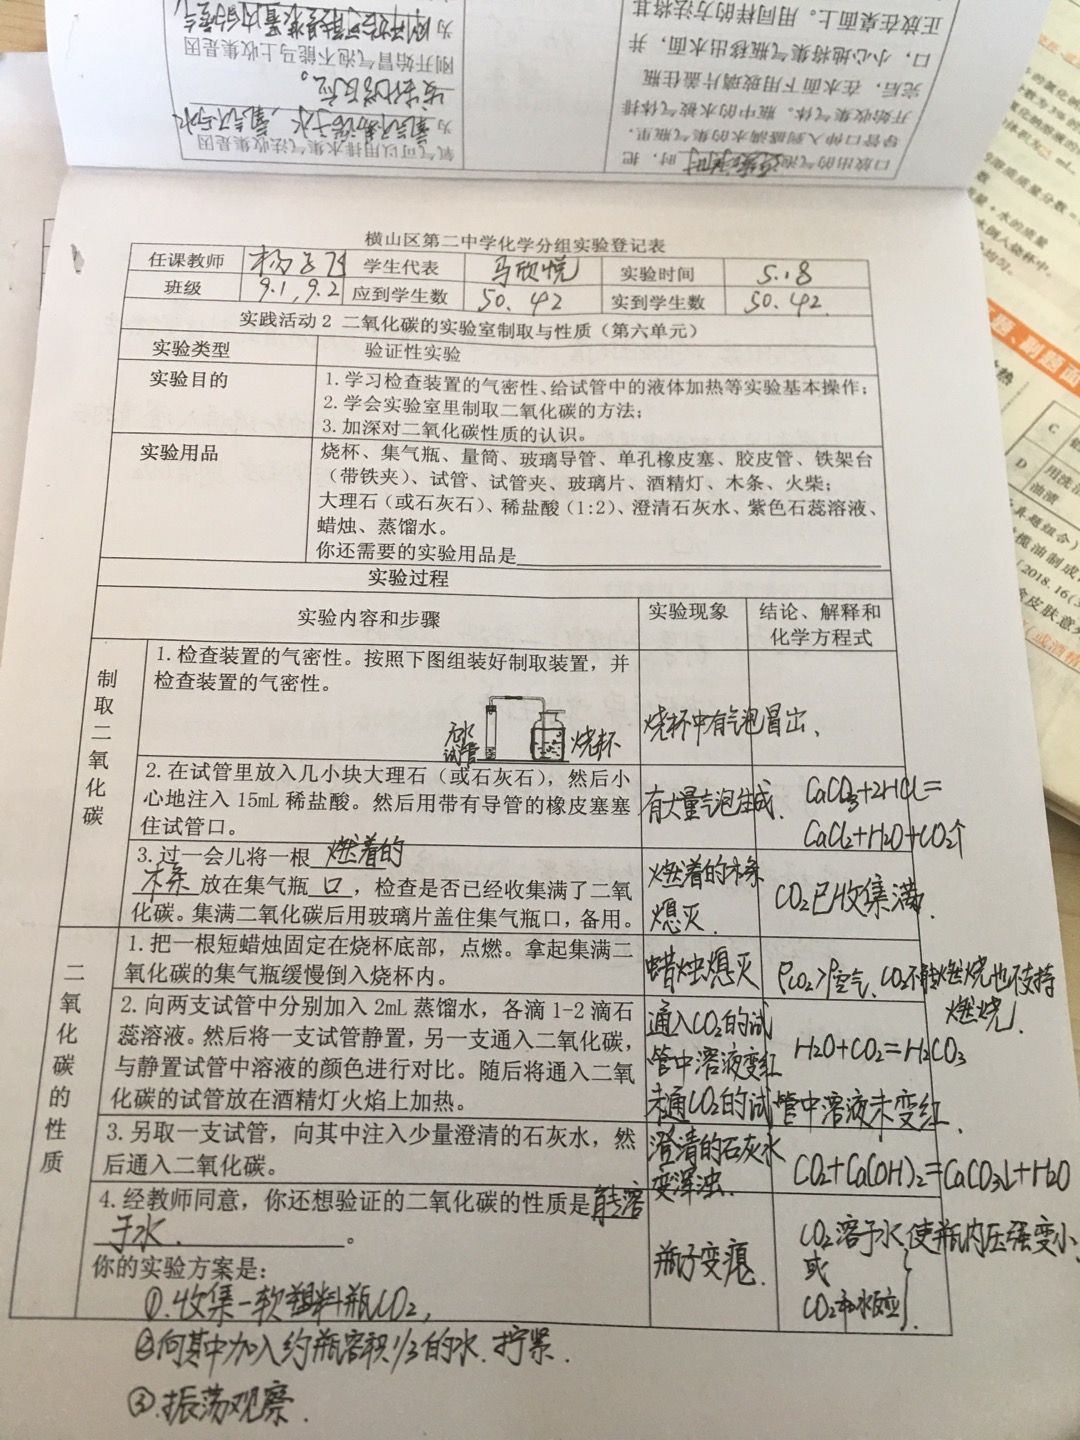 正放在桌面上。用同样的方法将其
口，小心地将集气瓶移出水面，并
完后，在水面下用玻璃片盖住瓶
开始收集气体。瓶中的水被气体排
导管口伸入到盛满水的集气瓶里，
口放出的气泡连续均匀时，把
刚开始冒气泡不能马上收集是因
为
没有化学反应。
为氧气不易溶于水，氧气不与水
氧气可以用排水集气法收集是因
横山区第二中学化学分组实验登记表
任课教师 学生代表 马欣悦 实验时间 5.18
班级 9.1，9.2 应到学生数 50.42 实到学生数 50.42.
实践活动2 二氧化碳的实验室制取与性质（第六单元）
实验类型 验证性实验
实验目的 1.学习检查装置的气密性、给试管中的液体加热等实验基本操作；
2.学会实验室里制取二氧化碳的方法；
3.加深对二氧化碳性质的认识。
实验用品 烧杯、集气瓶、量筒、玻璃导管、单孔橡皮塞、胶皮管、铁架台
（带铁夹）、试管、试管夹、玻璃片、酒精灯、木条、火柴；
大理石（或石灰石）、稀盐酸（1:2）、澄清石灰水、紫色石蕊溶液、
蜡烛、蒸馏水。
你还需要的实验用品是
实验过程
实验内容和步骤 实验现象 结论、解释和
化学方程式
制取二氧化碳
1.检查装置的气密性。按照下图组装好制取装置，并
检查装置的气密性。
试管 烧杯
烧杯中有气泡冒出、
2.在试管里放入几小块大理石（或石灰石），然后小
心地注入15mL稀盐酸。然后用带有导管的橡皮塞塞
住试管口。
有大量气泡生成、
CaCO3+2HCl=
CaCl2+H2O+CO2↑
3.过一会儿将一根 燃着的
木条 放在集气瓶 口 ，检查是否已经收集满了二氧
化碳。集满二氧化碳后用玻璃片盖住集气瓶口，备用。
燃着的木条
熄灭.
CO2已收集满.
二氧化碳的性质
1.把一根短蜡烛固定在烧杯底部，点燃。拿起集满二
氧化碳的集气瓶缓慢倒入烧杯内。
蜡烛熄灭
ρCO2>ρ空气、CO2不能燃烧也不支持
燃烧.
2.向两支试管中分别加入2mL蒸馏水，各滴1-2滴石
蕊溶液。然后将一支试管静置，另一支通入二氧化碳，
与静置试管中溶液的颜色进行对比。随后将通入二氧
化碳的试管放在酒精灯火焰上加热。
通入CO2的试
管中溶液变红
未通CO2的试管中溶液未变红.
H2O+CO2=H2CO3
3.另取一支试管，向其中注入少量澄清的石灰水，然
后通入二氧化碳。
澄清的石灰水
变浑浊.
CO2+Ca(OH)2=CaCO3↓+H2O
4.经教师同意，你还想验证的二氧化碳的性质是能溶
于水. 。
你的实验方案是：
①.收集一软塑料瓶CO2，
②向其中加入约瓶容积1/3的水.拧紧.
③.振荡观察.
瓶子变瘪.
CO2溶于水
或
CO2和水反应
使瓶内压强变小